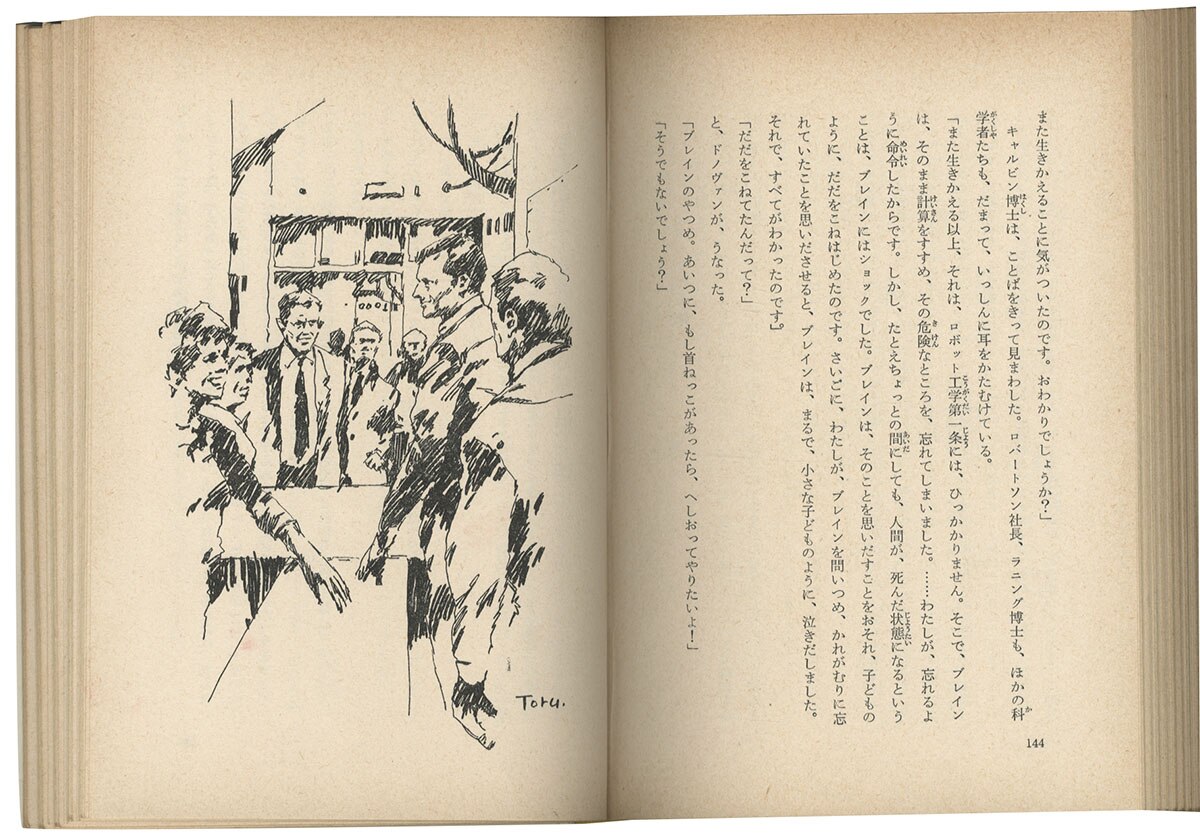 また生きかえることに気がついたのです。おわかりでしょうか？」
キャルビン博士は、ことばをきって見まわした。ロバートソン社長、ラニング博士も、ほかの科
学者たちも、だまって、いっしんに耳をかたむけている。
「また生きかえる以上、それは、ロボット工学第一条には、ひっかかりません。そこで、ブレイン
は、そのまま計算をすすめ、その危険なところを、忘れてしまいました。……わたしが、忘れるよ
うに命令したからです。しかし、たとえちょっとの間にしても、人間が、死んだ状態になるという
ことは、ブレインにはショックでした。ブレインは、そのことを思いだすことをおそれ、子どもの
ように、だだをこねはじめたのです。さいごに、わたしが、ブレインを問いつめ、かれがむりに忘
れていたことを思いださせると、ブレインは、まるで、小さな子どものように、泣きだしました。
それで、すべてがわかったのです』
「だだをこねてたんだって？」
と、ドノヴァンが、うなった。
「ブレインのやつめ。あいつに、もし首ねっこがあったら、へしおってやりたいよ！」
「そうでもないでしょう？」
144
Toru.